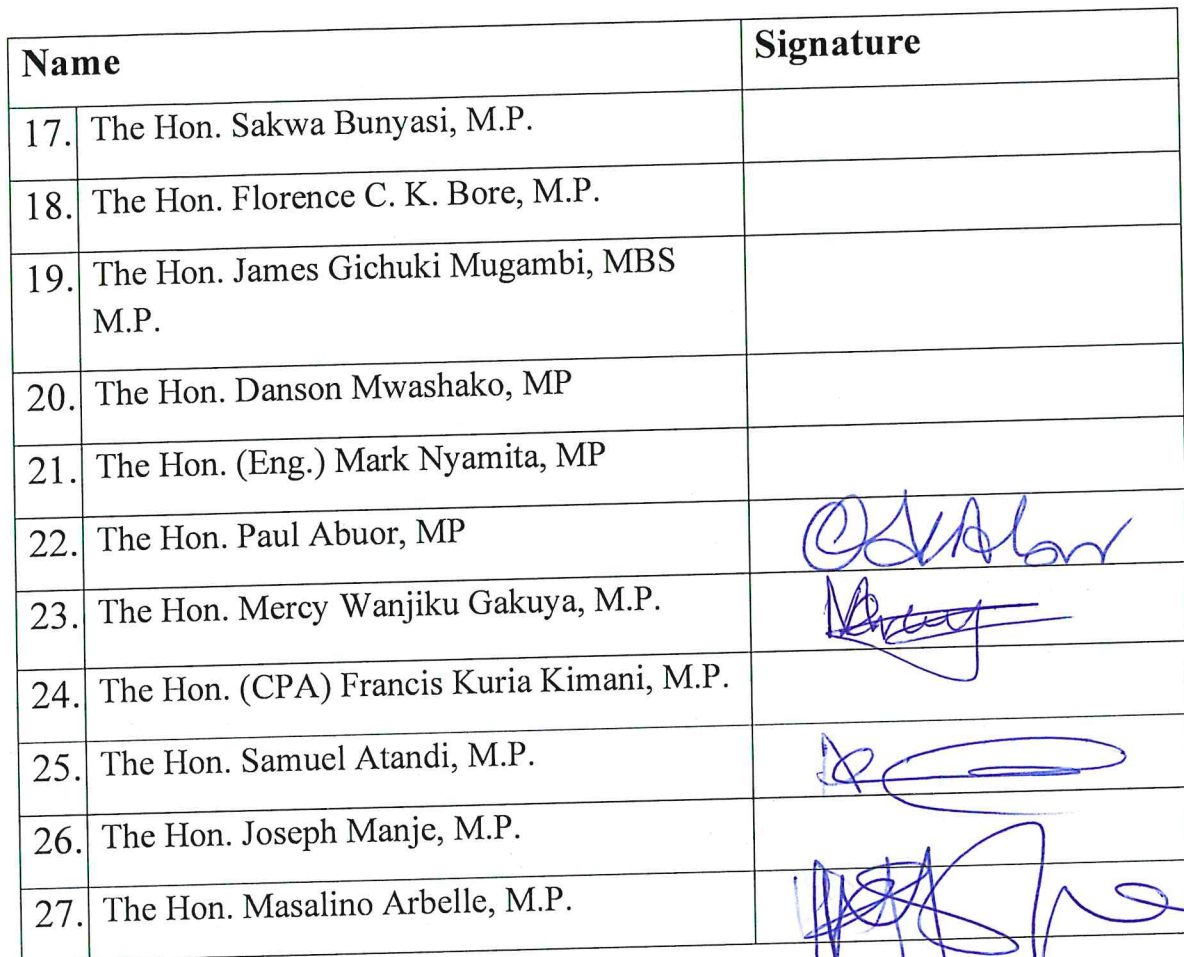 Name Signature
17. The Hon. Sakwa Bunyasi, M.P.
18. The Hon. Florence C. K. Bore, M.P.
19. The Hon. James Gichuki Mugambi, MBS
M.P.
20. The Hon. Danson Mwashako, MP
21. The Hon. (Eng.) Mark Nyamita, MP
22. The Hon. Paul Abuor, MP
23. The Hon. Mercy Wanjiku Gakuya, M.P.
24. The Hon. (CPA) Francis Kuria Kimani, M.P.
25. The Hon. Samuel Atandi, M.P.
26. The Hon. Joseph Manje, M.P.
27. The Hon. Masalino Arbelle, M.P.